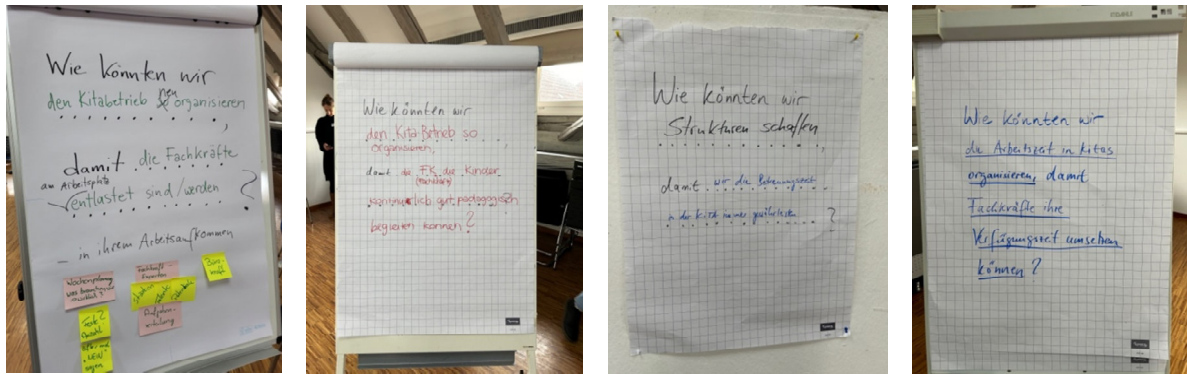 Wie könnten wir
den Kitabetrieb neu organisieren,
damit die Fachkräfte
am Arbeitsplatz
entlastet sind/werden?
– in ihrem Arbeitsaufkommen
Wochenplanung
was brauchen wir
wirklich?
Wie könnten wir
den Kita-Betrieb so
organisieren,
damit die FK die Kinder
lich gut pädagogisch
begleiten können?
Wie könnten wir
Strukturen schaffen,
damit wir die Betreuungszeit
in der Kita immer gewährleisten?
Wie könnten wir
die Arbeitszeit in Kitas
organisieren, damit
Fachkräfte ihre
Verfügungszeit umsetzen
können?